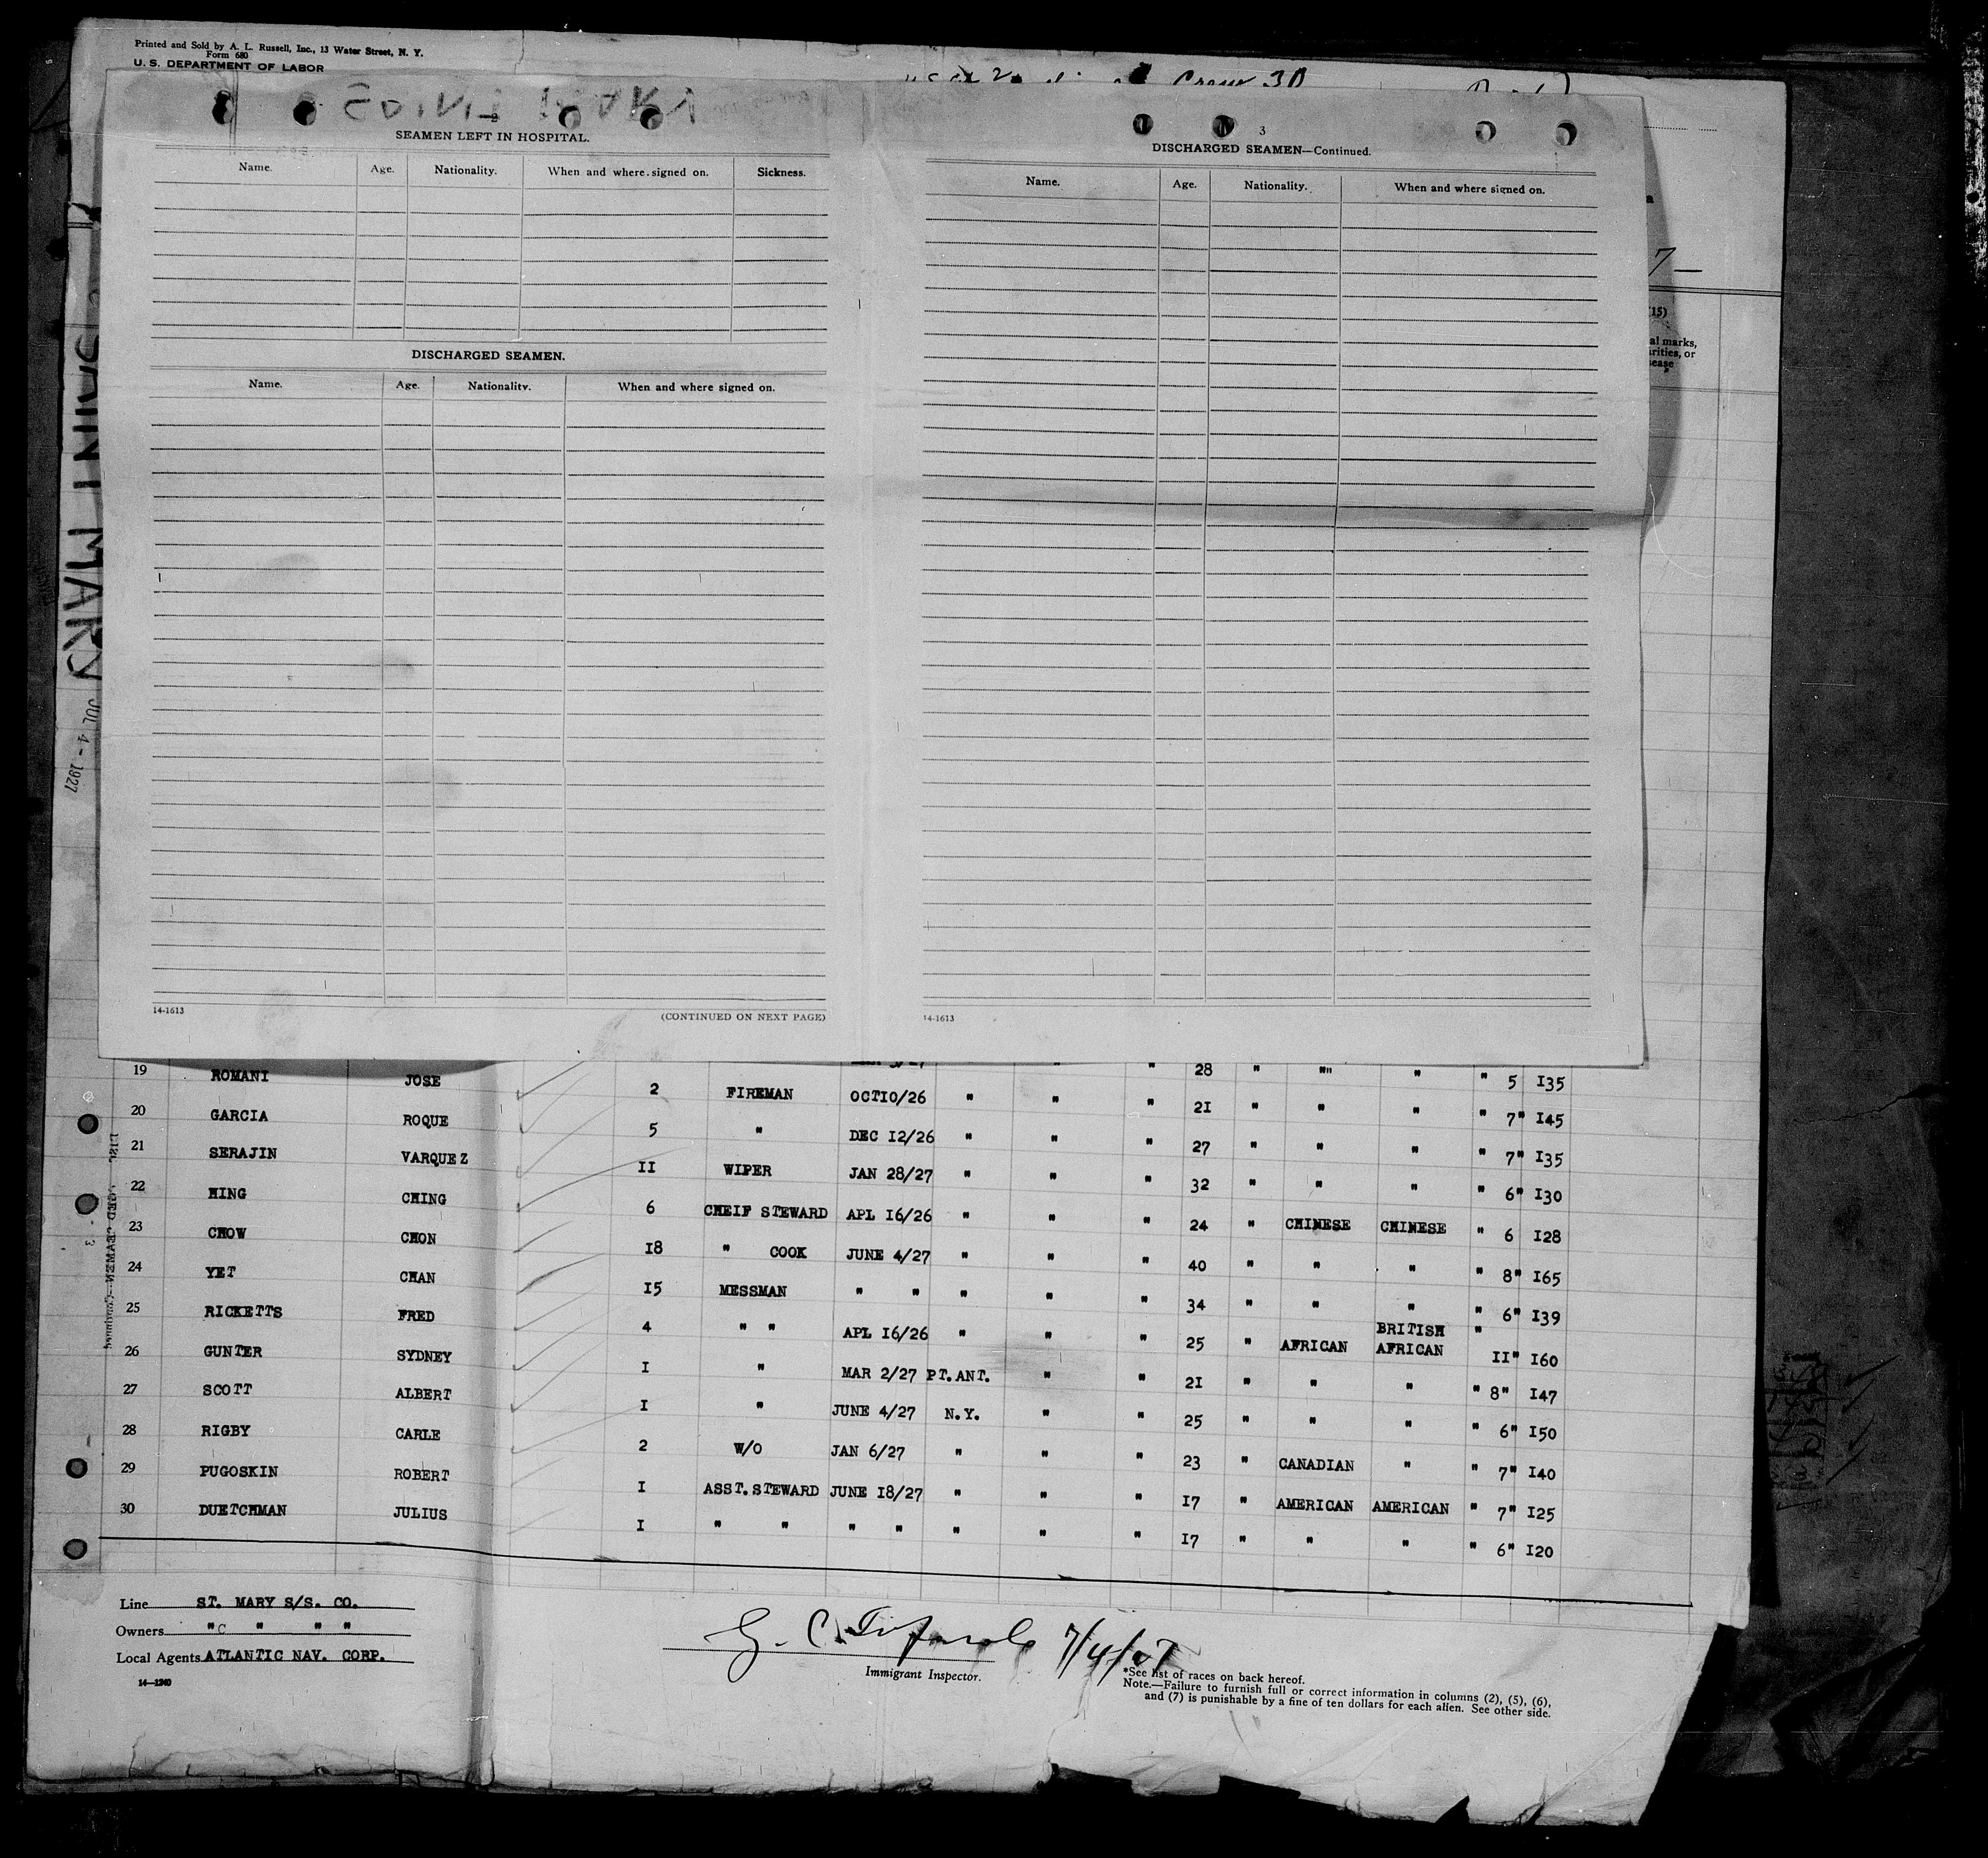 Printed and Sold by A. L. Russell, Inc., 13 Water Street, N. Y.
Form 680
U. S. DEPARTMENT OF LABOR
Crew 30
2
SEAMEN LEFT IN HOSPITAL.
Name. Age. Nationality. When and where signed on. Sickness.
DISCHARGED SEAMEN.
Name. Age. Nationality. When and where signed on.
14-1613 (CONTINUED ON NEXT PAGE)
3
DISCHARGED SEAMEN—Continued.
Name. Age. Nationality. When and where signed on.
14-1613
7—
15)
al marks,
arities, or
ease
SAINT MARY
JUL 4 - 1927
19 ROMANI JOSE 2 FIREMAN OCT10/26 " " " 28 " "" " " 5 I35
20 GARCIA ROQUE 5 " DEC I2/26 " " " 2I " " " " 7" I45
21 SERAJIN VARQUEZ II WIPER JAN 28/27 " " " 27 " " " " 7" I35
22 HING CHING 6 CHEIF STEWARD APL I6/26 " " " 32 " " " " 6" I30
23 CHOW CHON I8 " COOK JUNE 4/27 " " " 24 " CHINESE CHINESE " 6 I28
24 YET CHAN I5 MESSMAN " " " " " 40 " " " " 8" I65
25 RICKETTS FRED 4 " " APL I6/26 " " " 34 " " " " 6" I39
26 GUNTER SYDNEY I " MAR 2/27 PT.ANT. " " 25 " AFRICAN BRITISH AFRICAN " II" I60
27 SCOTT ALBERT I " JUNE 4/27 N.Y. " " 2I " " " " 8" I47
28 RIGBY CARLE 2 W/O JAN 6/27 " " " 25 " " " 6" I50
29 PUGOSKIN ROBERT I ASST.STEWARD JUNE I8/27 " " " 23 " CANADIAN " " 7" I40
30 DUETCHMAN JULIUS I " " " " " " " I7 " AMERICAN AMERICAN " 7" I25
I7 " " " " 6" I20
Line ST. MARY S/S. CO.
Owners "c " " "
Local Agents ATLANTIC NAV. CORP.
14—1240
G. C. 7/4/27
Immigrant Inspector.
*See list of races on back hereof.
Note.—Failure to furnish full or correct information in columns (2), (5), (6),
and (7) is punishable by a fine of ten dollars for each alien. See other side.